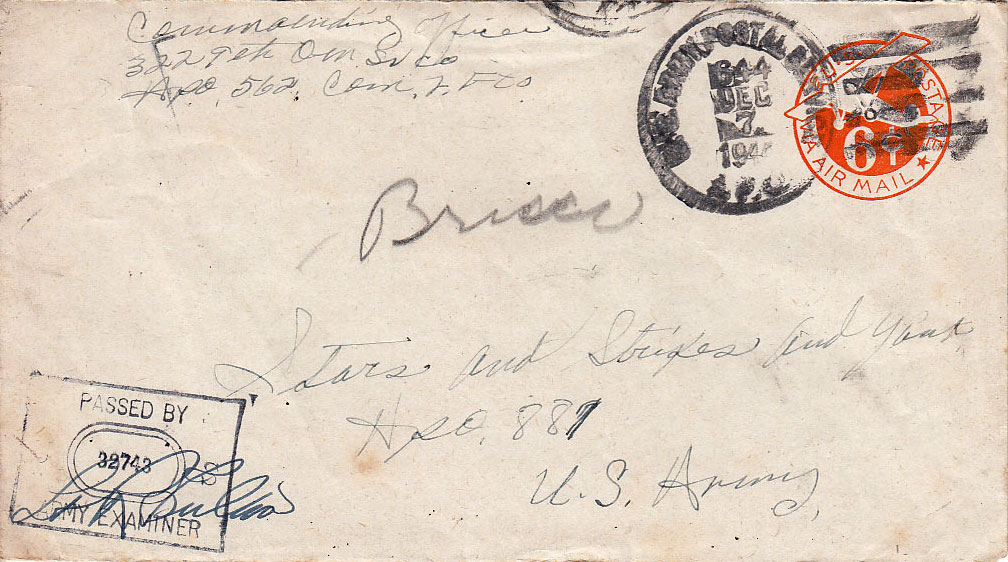 Commanding Officer
3229th Qm Sv Co
Apo 562, Com Z ETO
U.S. ARMY POSTAL SERVICE
644
DEC
7
194
A.P.O.
U.S. POSTAGE
6¢
VIA AIR MAIL
Stars and Stripes and Yank
Apo. 887
U.S. Army
PASSED BY
32743
US
ARMY EXAMINER